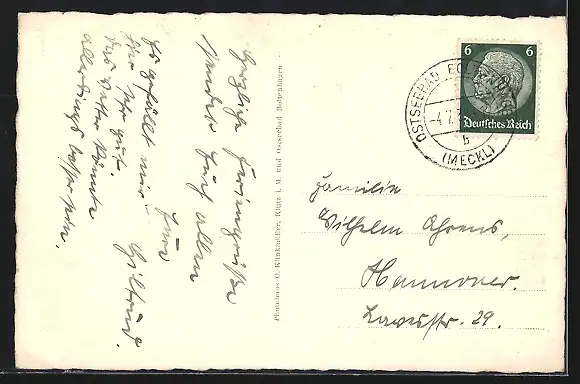 Herzliche Feriengrüße
sendet Euch allen
Eure
Giltrud.
Es gefällt mir
hier sehr gut.
Das Wetter könnte
allerdings besser sein.
Photohaus O. Klinkmüller, Klütz i. M. und Ostseebad Boltenhagen
6 6
Deutsches Reich
OSTSEEBAD
-4.7.
b
(MECKL)
Familie
Wilhelm Ahrens,
Hannover.
29.